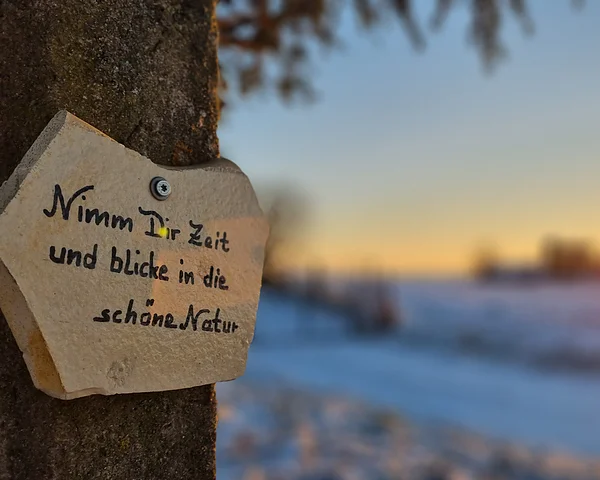 Nimm Dir Zeit
und blicke in die
schöne Natur